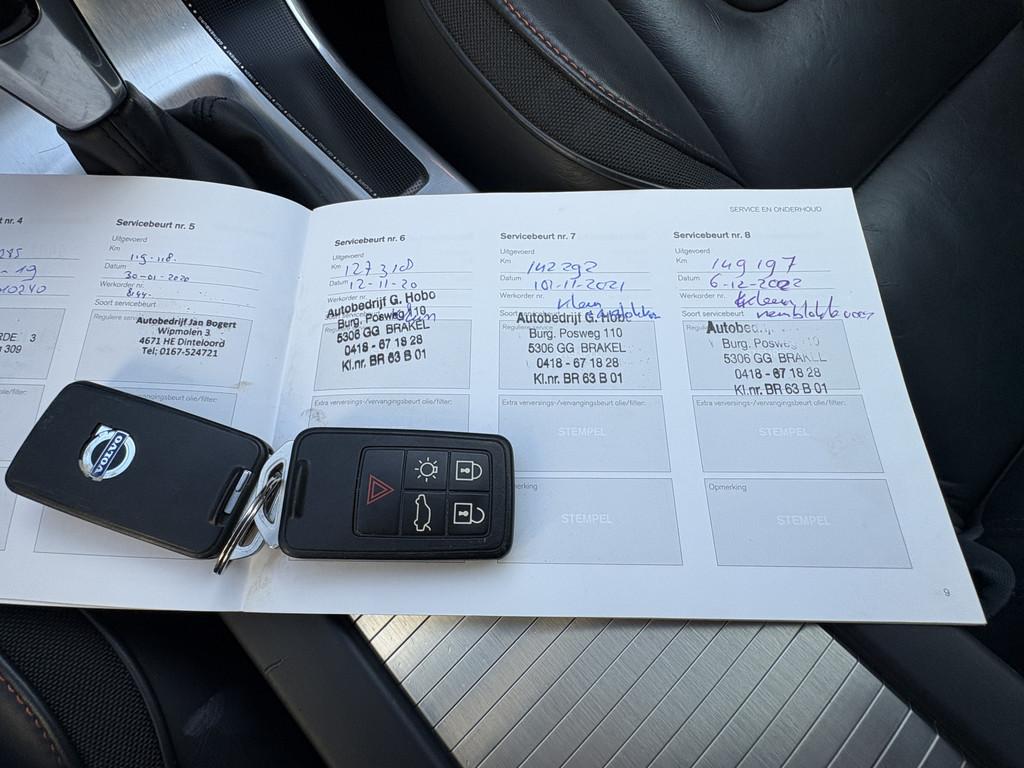 SERVICE EN ONDERHOUD
nr. 4
-19
10240
RDE 3
309
Servicebeurt nr. 5
Uitgevoerd
Km
115.118.
Datum
30-01-2020
Werkorder nr.
Soort servicebeurt
Reguliere
Autobedrijf Jan Bogert
Wipmolen 3
4671 HE Dinteloord
Tel; 0167-524721
Servicebeurt nr. 6
Uitgevoerd
Km 127 310
Datum 12-11-20
Werkorder nr.
Autobedrijf G. Hobo
Burg. Posweg 110
5306 GG BRAKEL
0418 - 67 18 28
Kl.nr. BR 63 B 01
Extra verversings-/vervangingsbeurt olie/filter:
Servicebeurt nr. 7
Uitgevoerd
Km 142 292
Datum 101-11-2021
Werkorder nr. Klein
Soort servicebeurt
Autobedrijf G. Hobo
Burg. Posweg 110
5306 GG BRAKEL
0418 - 67 18 28
Kl.nr. BR 63 B 01
Extra verversings-/vervangingsbeurt olie/filter:
STEMPEL
STEMPEL
Servicebeurt nr. 8
Uitgevoerd
Km 149 197
Datum 6-12-2022
Werkorder nr. Kleen
Soort servicebeurt remblokken voor
Autobedrij
Burg. Posweg 110
5306 GG BRAKEL
0418 - 67 18 28
Kl.nr. BR 63 B 01
Extra verversings-/vervangingsbeurt olie/filter:
STEMPEL
Opmerking
STEMPEL
9
VOLVO